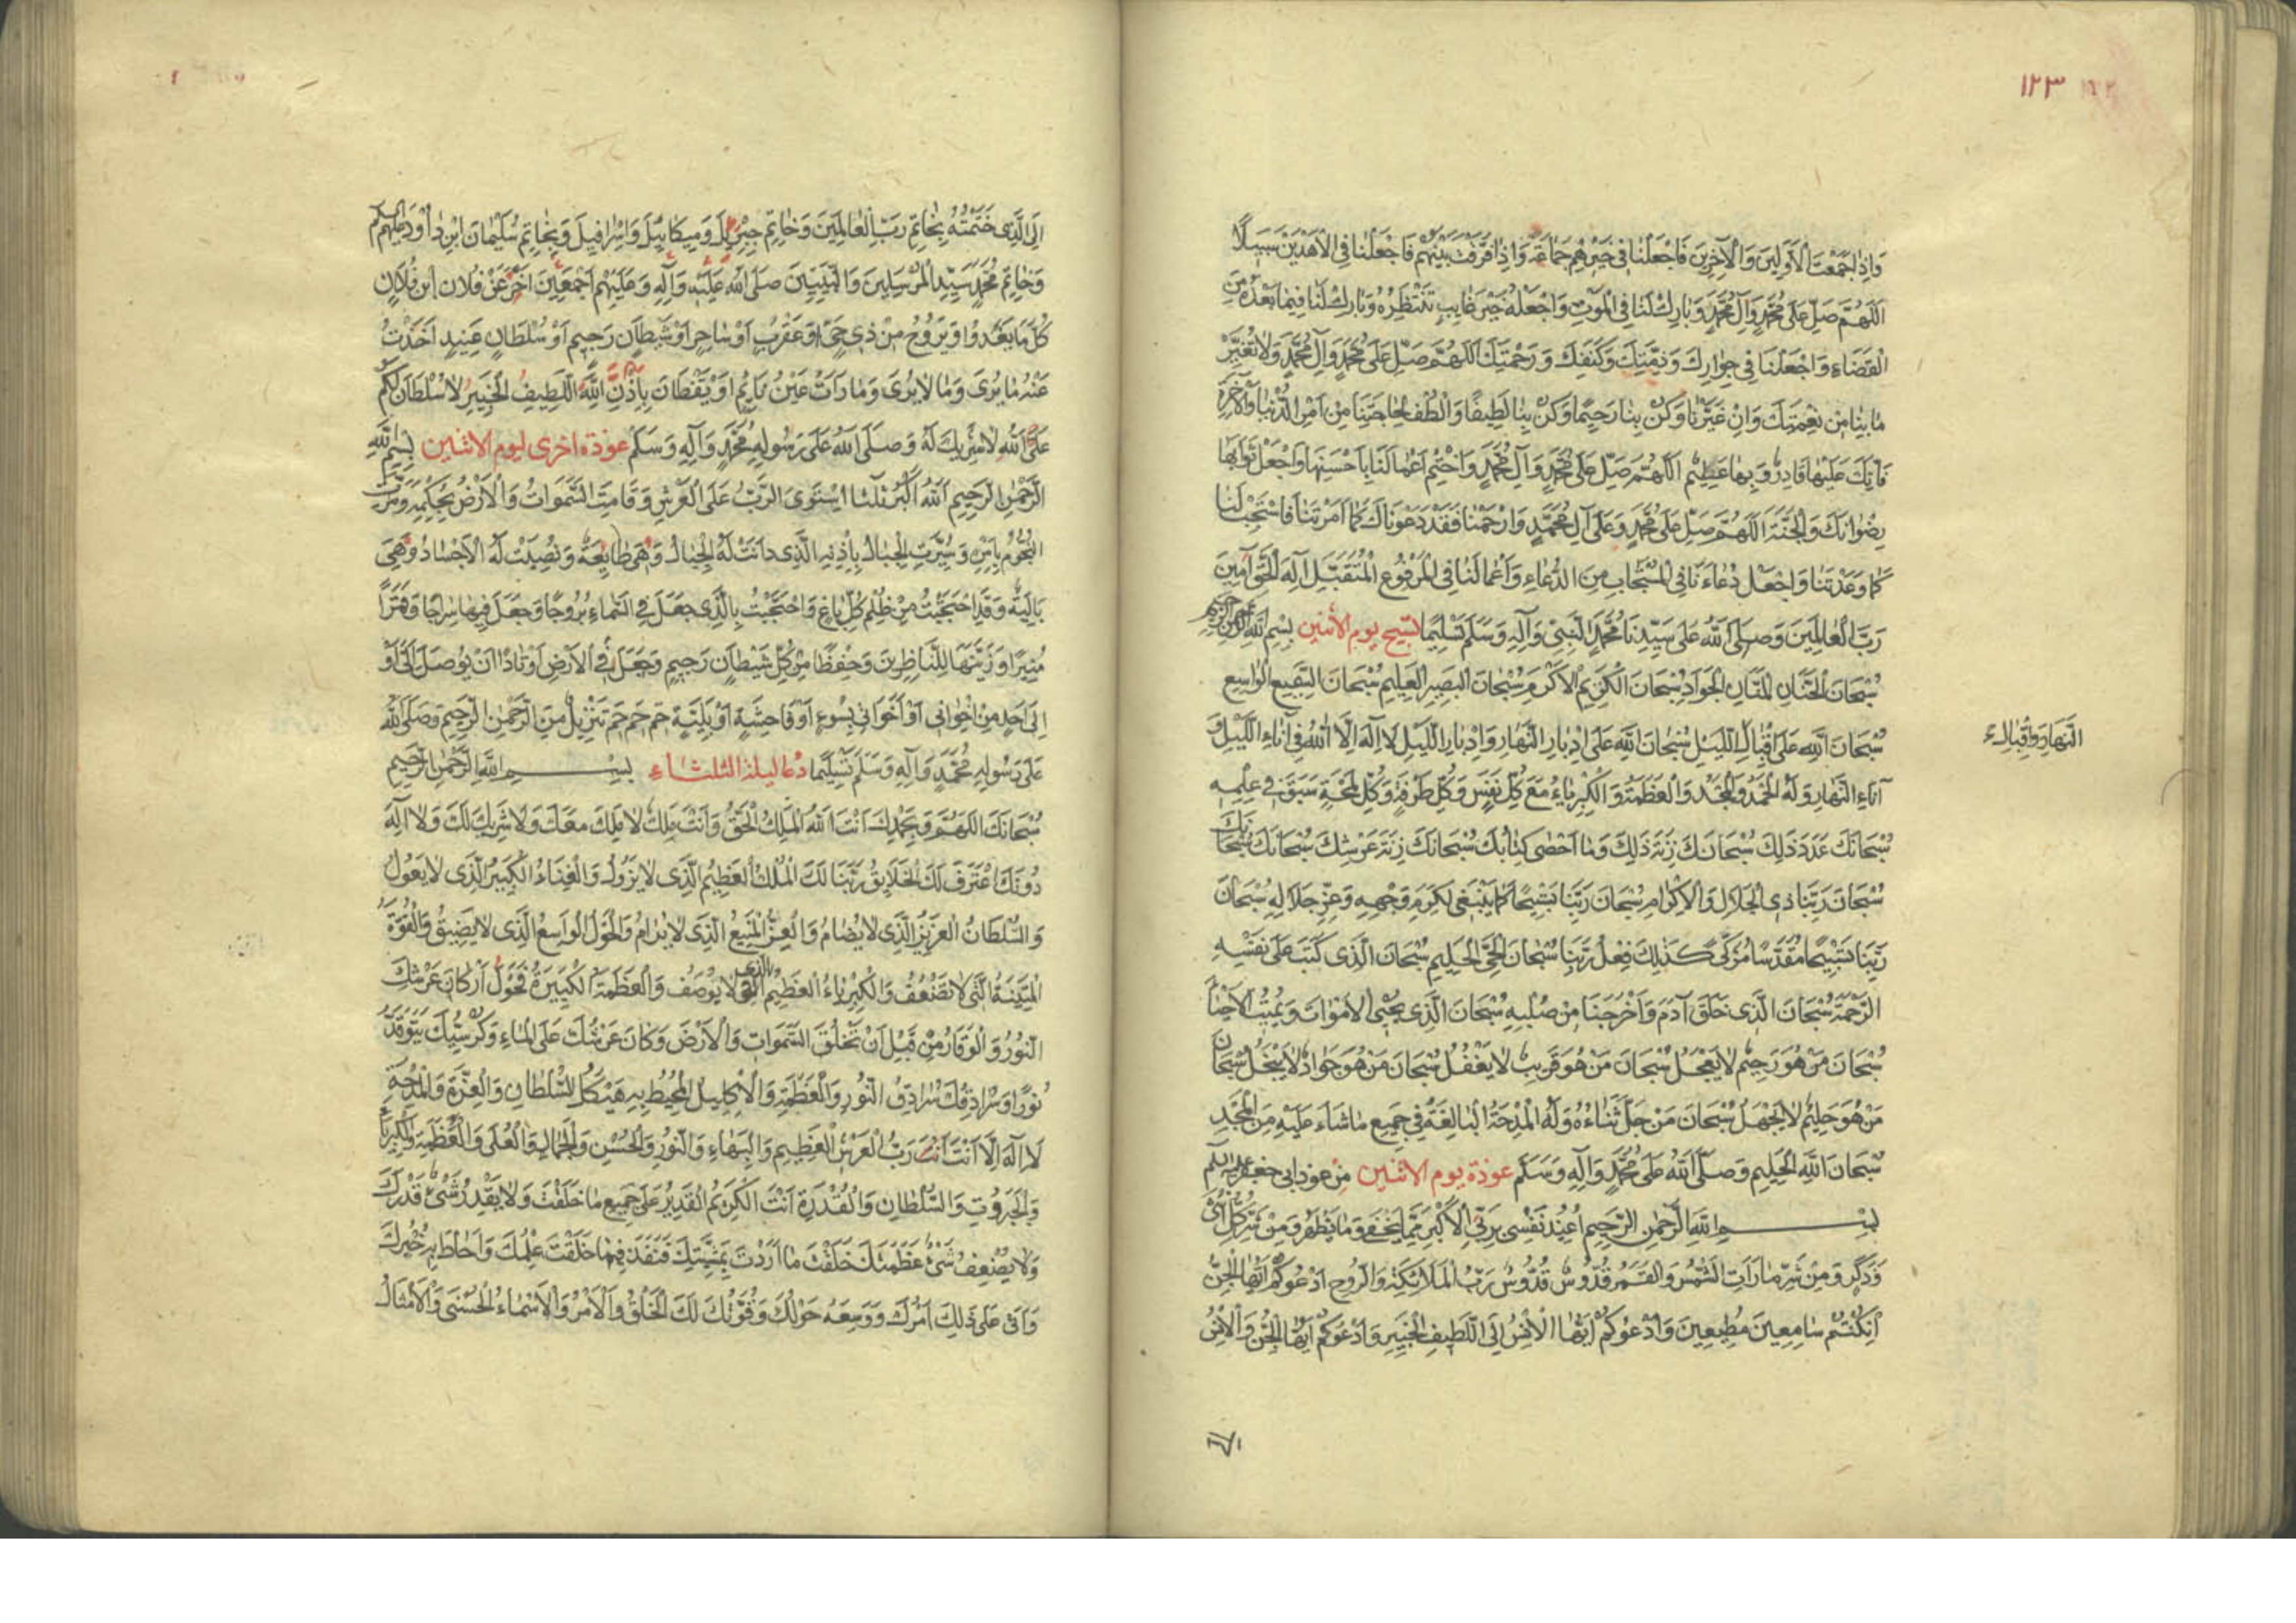 ١٢٣
وَاِذَا جَمَعْتَ الْاَوَّلِينَ وَالْآخِرِينَ فَاجْعَلْنَا فِى خَيْرِهِمْ جَمَاعَةً وَاِذَا فَرَّقْتَ بَيْنَهُمْ فَاجْعَلْنَا فِى الْاَهْدَيْنَ سَبِيلًا
اَللّٰهُمَّ صَلِّ عَلٰى مُحَمَّدٍ وَآلِ مُحَمَّدٍ وَبَارِكْ لَنَا فِى الْمَوْتِ وَاجْعَلْهُ خَيْرَ غَايِبٍ نَنْتَظِرُهُ وَبَارِكْ لَنَا فِيمَا بَعْدَهُ مِنَ
الْقَضَاءِ وَاجْعَلْنَا فِى جِوَارِكَ وَذِمَّتِكَ وَكَنَفِكَ وَرَحْمَتِكَ اَللّٰهُمَّ صَلِّ عَلٰى مُحَمَّدٍ وَآلِ مُحَمَّدٍ وَلَا تُغَيِّرْ
مَا بِنَا مِنْ نِعْمَتِكَ وَاِنْ غَيَّرْنَا وَكُنْ بِنَا رَحِيمًا وَكُنْ بِنَا لَطِيفًا وَالْطُفْ لِحَاجَتِنَا مِنْ اَمْرِ الدُّنْيَا وَالْآخِرَةِ
فَاِنَّكَ عَلَيْهَا قَادِرٌ وَبِهَا عَظِيمٌ اَللّٰهُمَّ صَلِّ عَلٰى مُحَمَّدٍ وَآلِ مُحَمَّدٍ وَاخْتِمْ اَعْمَالَنَا بِاَحْسَنِهَا وَاجْعَلْ ثَوَابَهَا
رِضْوَانَكَ وَالْجَنَّةَ اَللّٰهُمَّ صَلِّ عَلٰى مُحَمَّدٍ وَعَلٰى آلِ مُحَمَّدٍ وَارْحَمْنَا فَقَدْ دَعَوْنَاكَ كَمَا اَمَرْتَنَا فَاسْتَجِبْ لَنَا
كَمَا وَعَدْتَنَا وَاجْعَلْ دُعَاءَنَا فِى الْمُسْتَجَابِ مِنَ الدُّعَاءِ وَاَعْمَالَنَا فِى الْمَرْفُوعِ الْمُتَقَبَّلِ اِلٰهَ الْحَقِّ آمِينَ
رَبَّ الْعَالَمِينَ وَصَلَّى اللهُ عَلٰى سَيِّدِنَا مُحَمَّدٍ النَّبِىِّ وَآلِهِ وَسَلَّمَ تَسْلِيمًا تسبيح يوم الاثنين بِسْمِ اللهِ الرَّحْمٰنِ الرَّحِيمِ
سُبْحَانَ الْحَنَّانِ الْمَنَّانِ الْجَوَادِ سُبْحَانَ الْكَرِيمِ الْاَكْرَمِ سُبْحَانَ الْبَصِيرِ الْعَلِيمِ سُبْحَانَ السَّمِيعِ الْوَاسِعِ
سُبْحَانَ اللهِ عَلٰى اِقْبَالِ اللَّيْلِ سُبْحَانَ اللهِ عَلٰى اِدْبَارِ النَّهَارِ وَاِدْبَارِ اللَّيْلِ لَا اِلٰهَ اِلَّا اللهُ فِى آنَاءِ اللَّيْلِ وَ
النَّهَارِ وَاِقْبَالِ
آنَاءِ النَّهَارِ وَلَهُ الْحَمْدُ وَالْمَجْدُ وَالْعَظَمَةُ وَالْكِبْرِيَاءُ مَعَ كُلِّ نَفَسٍ وَكُلِّ طَرْفَةٍ وَكُلِّ لَمْحَةٍ سَبَقَ فِى عِلْمِهِ
سُبْحَانَكَ عَدَدَ ذٰلِكَ سُبْحَانَكَ زِنَةَ ذٰلِكَ وَمَا اَحْصٰى كِتَابُكَ سُبْحَانَكَ زِنَةَ عَرْشِكَ سُبْحَانَكَ سُبْحَانَكَ
سُبْحَانَ رَبِّنَا ذِى الْجَلَالِ وَالْاِكْرَامِ سُبْحَانَ رَبِّنَا تَسْبِيحًا كَمَا يَنْبَغِى لِكَرَمِ وَجْهِهِ وَعِزِّ جَلَالِهِ سُبْحَانَ
رَبِّنَا تَسْبِيحًا مُقَدَّسًا مُزَكًّى كَذٰلِكَ فِعْلُ رَبِّنَا سُبْحَانَ الْحَىِّ الْحَلِيمِ سُبْحَانَ الَّذِى كَتَبَ عَلٰى نَفْسِهِ
الرَّحْمَةَ سُبْحَانَ الَّذِى خَلَقَ آدَمَ وَاَخْرَجَنَا مِنْ صُلْبِهِ سُبْحَانَ الَّذِى يُحْيِى الْاَمْوَاتَ وَيُمِيتُ الْاَحْيَاءَ
سُبْحَانَ مَنْ هُوَ رَحِيمٌ لَا يَعْجَلُ سُبْحَانَ مَنْ هُوَ قَرِيبٌ لَا يَغْفُلُ سُبْحَانَ مَنْ هُوَ جَوَادٌ لَا يَبْخَلُ سُبْحَانَ
مَنْ هُوَ حَلِيمٌ لَا يَجْهَلُ سُبْحَانَ مَنْ جَلَّ ثَنَاءُهُ وَلَهُ الْمِدْحَةُ الْبَالِغَةُ فِى جَمِيعِ مَا شَاءَ عَلَيْهِ مِنَ الْمَجْدِ
سُبْحَانَ اللهِ الْحَلِيمِ وَصَلَّى اللهُ عَلٰى مُحَمَّدٍ وَآلِهِ وَسَلَّمَ عوذة يوم الاثنين مِنْ عوذ ابى جعفر عليه السلم
بِسْمِ اللهِ الرَّحْمٰنِ الرَّحِيمِ اُعِيذُ نَفْسِى بِرَبِّىَ الْاَكْبَرِ مِمَّا يَخْفٰى وَمَا يَظْهَرُ وَمِنْ شَرِّ كُلِّ اُنْثٰى
وَذَكَرٍ وَمِنْ شَرِّ مَا رَاَتِ الشَّمْسُ وَالْقَمَرُ قُدُّوسٌ قُدُّوسٌ رَبُّ الْمَلَائِكَةِ وَالرُّوحِ اَدْعُوكُمْ اَيُّهَا الْجِنُّ
اِنْ كُنْتُمْ سَامِعِينَ مُطِيعِينَ وَاَدْعُوكُمْ اَيُّهَا الْاِنْسُ اِلَى اللَّطِيفِ الْخَبِيرِ وَاَدْعُوكُمْ اَيُّهَا الْجِنُّ وَالْاِنْسُ
اِلَى الَّذِى خَتَمْتُهُ بِخَاتَمِ رَبِّ الْعَالَمِينَ وَخَاتَمِ جِبْرِيلَ وَمِيكَائِيلَ وَاِسْرَافِيلَ وَبِخَاتَمِ سُلَيْمَانَ ابْنِ دَاوُدَ عليهم السلم
وَخَاتَمِ مُحَمَّدٍ سَيِّدِ الْمُرْسَلِينَ وَالنَّبِيِّينَ صَلَّى اللهُ عَلَيْهِ وَآلِهِ وَعَلَيْهِمْ اَجْمَعِينَ اَخِّرْ عَنْ فُلَانِ ابْنِ فُلَانٍ
كُلَّ مَا يَغْدُوا وَيَرُوحُ مِنْ ذِى حَىٍّ اَوْ عَقْرَبٍ اَوْ سَاحِرٍ اَوْ شَيْطَانٍ رَجِيمٍ اَوْ سُلْطَانٍ عَنِيدٍ اَخَذْتُ
عَنْهُ مَا يُرٰى وَمَا لَا يُرٰى وَمَا رَاَتْ عَيْنُ نَائِمٍ اَوْ يَقْظَانَ بِاِذْنِ اللهِ اللَّطِيفِ الْخَبِيرِ لَا سُلْطَانَ لَكُمْ
عَلَى اللهِ لَا شَرِيكَ لَهُ وَصَلَّى اللهُ عَلٰى رَسُولِهِ مُحَمَّدٍ وَآلِهِ وَسَلَّمَ عوذة اخرى ليوم الاثنين بِسْمِ اللهِ
الرَّحْمٰنِ الرَّحِيمِ اَللهُ اَكْبَرُ ثلثا اسْتَوَى الرَّبُّ عَلَى الْعَرْشِ وَقَامَتِ السَّمٰوَاتُ وَالْاَرْضُ بِحِكْمَتِهِ وَمَدَّتِ
النُّجُومُ بِاَمْرِهِ وَسُيِّرَتِ الْجِبَالُ بِاِذْنِهِ الَّذِى دَانَتْ لَهُ الْجِبَالُ وَهِىَ طَايِعَةٌ وَنُصِبَتْ لَهُ الْاَجْسَادُ وَهِىَ
بَالِيَةٌ وَقَدِ احْتَجَبْتُ مِنْ ظُلْمِ كُلِّ بَاغٍ وَاحْتَجَبْتُ بِالَّذِى جَعَلَ فِى السَّمَاءِ بُرُوجًا وَجَعَلَ فِيهَا سِرَاجًا وَقَمَرًا
مُنِيرًا وَزَيَّنَهَا لِلنَّاظِرِينَ وَحِفْظًا مِنْ كُلِّ شَيْطَانٍ رَجِيمٍ وَجَعَلَ فِى الْاَرْضِ اَوْتَادًا اَنْ يُوصَلَ اِلَىَّ اَوْ
اِلٰى اَحَدٍ مِنْ اِخْوَانِى اَوْ اَخَوَاتِى بِسُوءٍ اَوْ فَاحِشَةٍ اَوْ بَلِيَّةٍ حٰم حٰم حٰم تَنْزِيلٌ مِنَ الرَّحْمٰنِ الرَّحِيمِ وَصَلَّى اللهُ
عَلٰى رَسُولِهِ مُحَمَّدٍ وَآلِهِ وَسَلَّمَ تَسْلِيمًا دعا ليلة الثلثاء بِسْمِ اللهِ الرَّحْمٰنِ الرَّحِيمِ
سُبْحَانَكَ اللّٰهُمَّ وَبِحَمْدِكَ اَنْتَ اللهُ الْمَلِكُ الْحَقُّ وَاَنْتَ مَلِكٌ لَا مَلِكَ مَعَكَ وَلَا شَرِيكَ لَكَ وَلَا اِلٰهَ
دُونَكَ اعْتَرَفَ لَكَ الْخَلَايِقُ رَبَّنَا لَكَ الْمُلْكُ الْعَظِيمُ الَّذِى لَا يَزُولُ وَالْغِنَاءُ الْكَبِيرُ الَّذِى لَا يَعُولُ
وَالسُّلْطَانُ الْعَزِيزُ الَّذِى لَا يُضَامُ وَالْعِزُّ الْمَنِيعُ الَّذِى لَا يُرَامُ وَالْحَوْلُ الْوَاسِعُ الَّذِى لَا يَضِيقُ وَالْقُوَّةُ
الْمَتِينَةُ الَّتِى لَا تَضْعُفُ وَالْكِبْرِيَاءُ الْعَظِيمُ الَّذِى لَا يُوصَفُ وَالْعَظَمَةُ الْكَبِيرَةُ فَحَوْلَ اَرْكَانِ عَرْشِكَ
النُّورُ وَالْوَقَارُ مِنْ قَبْلِ اَنْ تَخْلُقَ السَّمٰوَاتِ وَالْاَرْضَ وَكَانَ عَرْشُكَ عَلَى الْمَاءِ وَكُرْسِيُّكَ يَتَوَقَّدُ
نُورًا وَسُرَادِقُكَ سُرَادِقُ النُّورِ وَالْعَظَمَةِ وَالْاِكْلِيلُ الْمُحِيطُ بِهِ هَيْكَلُ السُّلْطَانِ وَالْعِزَّةِ وَالْمِدْحَةِ
لَا اِلٰهَ اِلَّا اَنْتَ اَنْتَ رَبُّ الْعَرْشِ الْعَظِيمِ وَالْبَهَاءِ وَالنُّورِ وَالْحُسْنِ وَالْجَمَالِ وَالْعُلٰى وَالْعَظَمَةِ وَالْكِبْرِيَاءِ
وَالْجَبَرُوتِ وَالسُّلْطَانِ وَالْقُدْرَةِ اَنْتَ الْكَرِيمُ الْقَدِيرُ عَلٰى جَمِيعِ مَا خَلَقْتَ وَلَا يَقْدِرُ شَىْءٌ قَدْرَكَ
وَلَا يُضْعِفُ شَىْءٌ عَظَمَتَكَ خَلَقْتَ مَا اَرَدْتَ بِمَشِيَّتِكَ فَنَفَذَ فِيمَا خَلَقْتَ عِلْمُكَ وَاَحَاطَ بِهِ خُبْرُكَ
وَاَتٰى عَلٰى ذٰلِكَ اَمْرُكَ وَوَسِعَهُ حَوْلُكَ وَقُوَّتُكَ لَكَ الْخَلْقُ وَالْاَمْرُ وَالْاَسْمَاءُ الْحُسْنٰى وَالْاَمْثَالُ